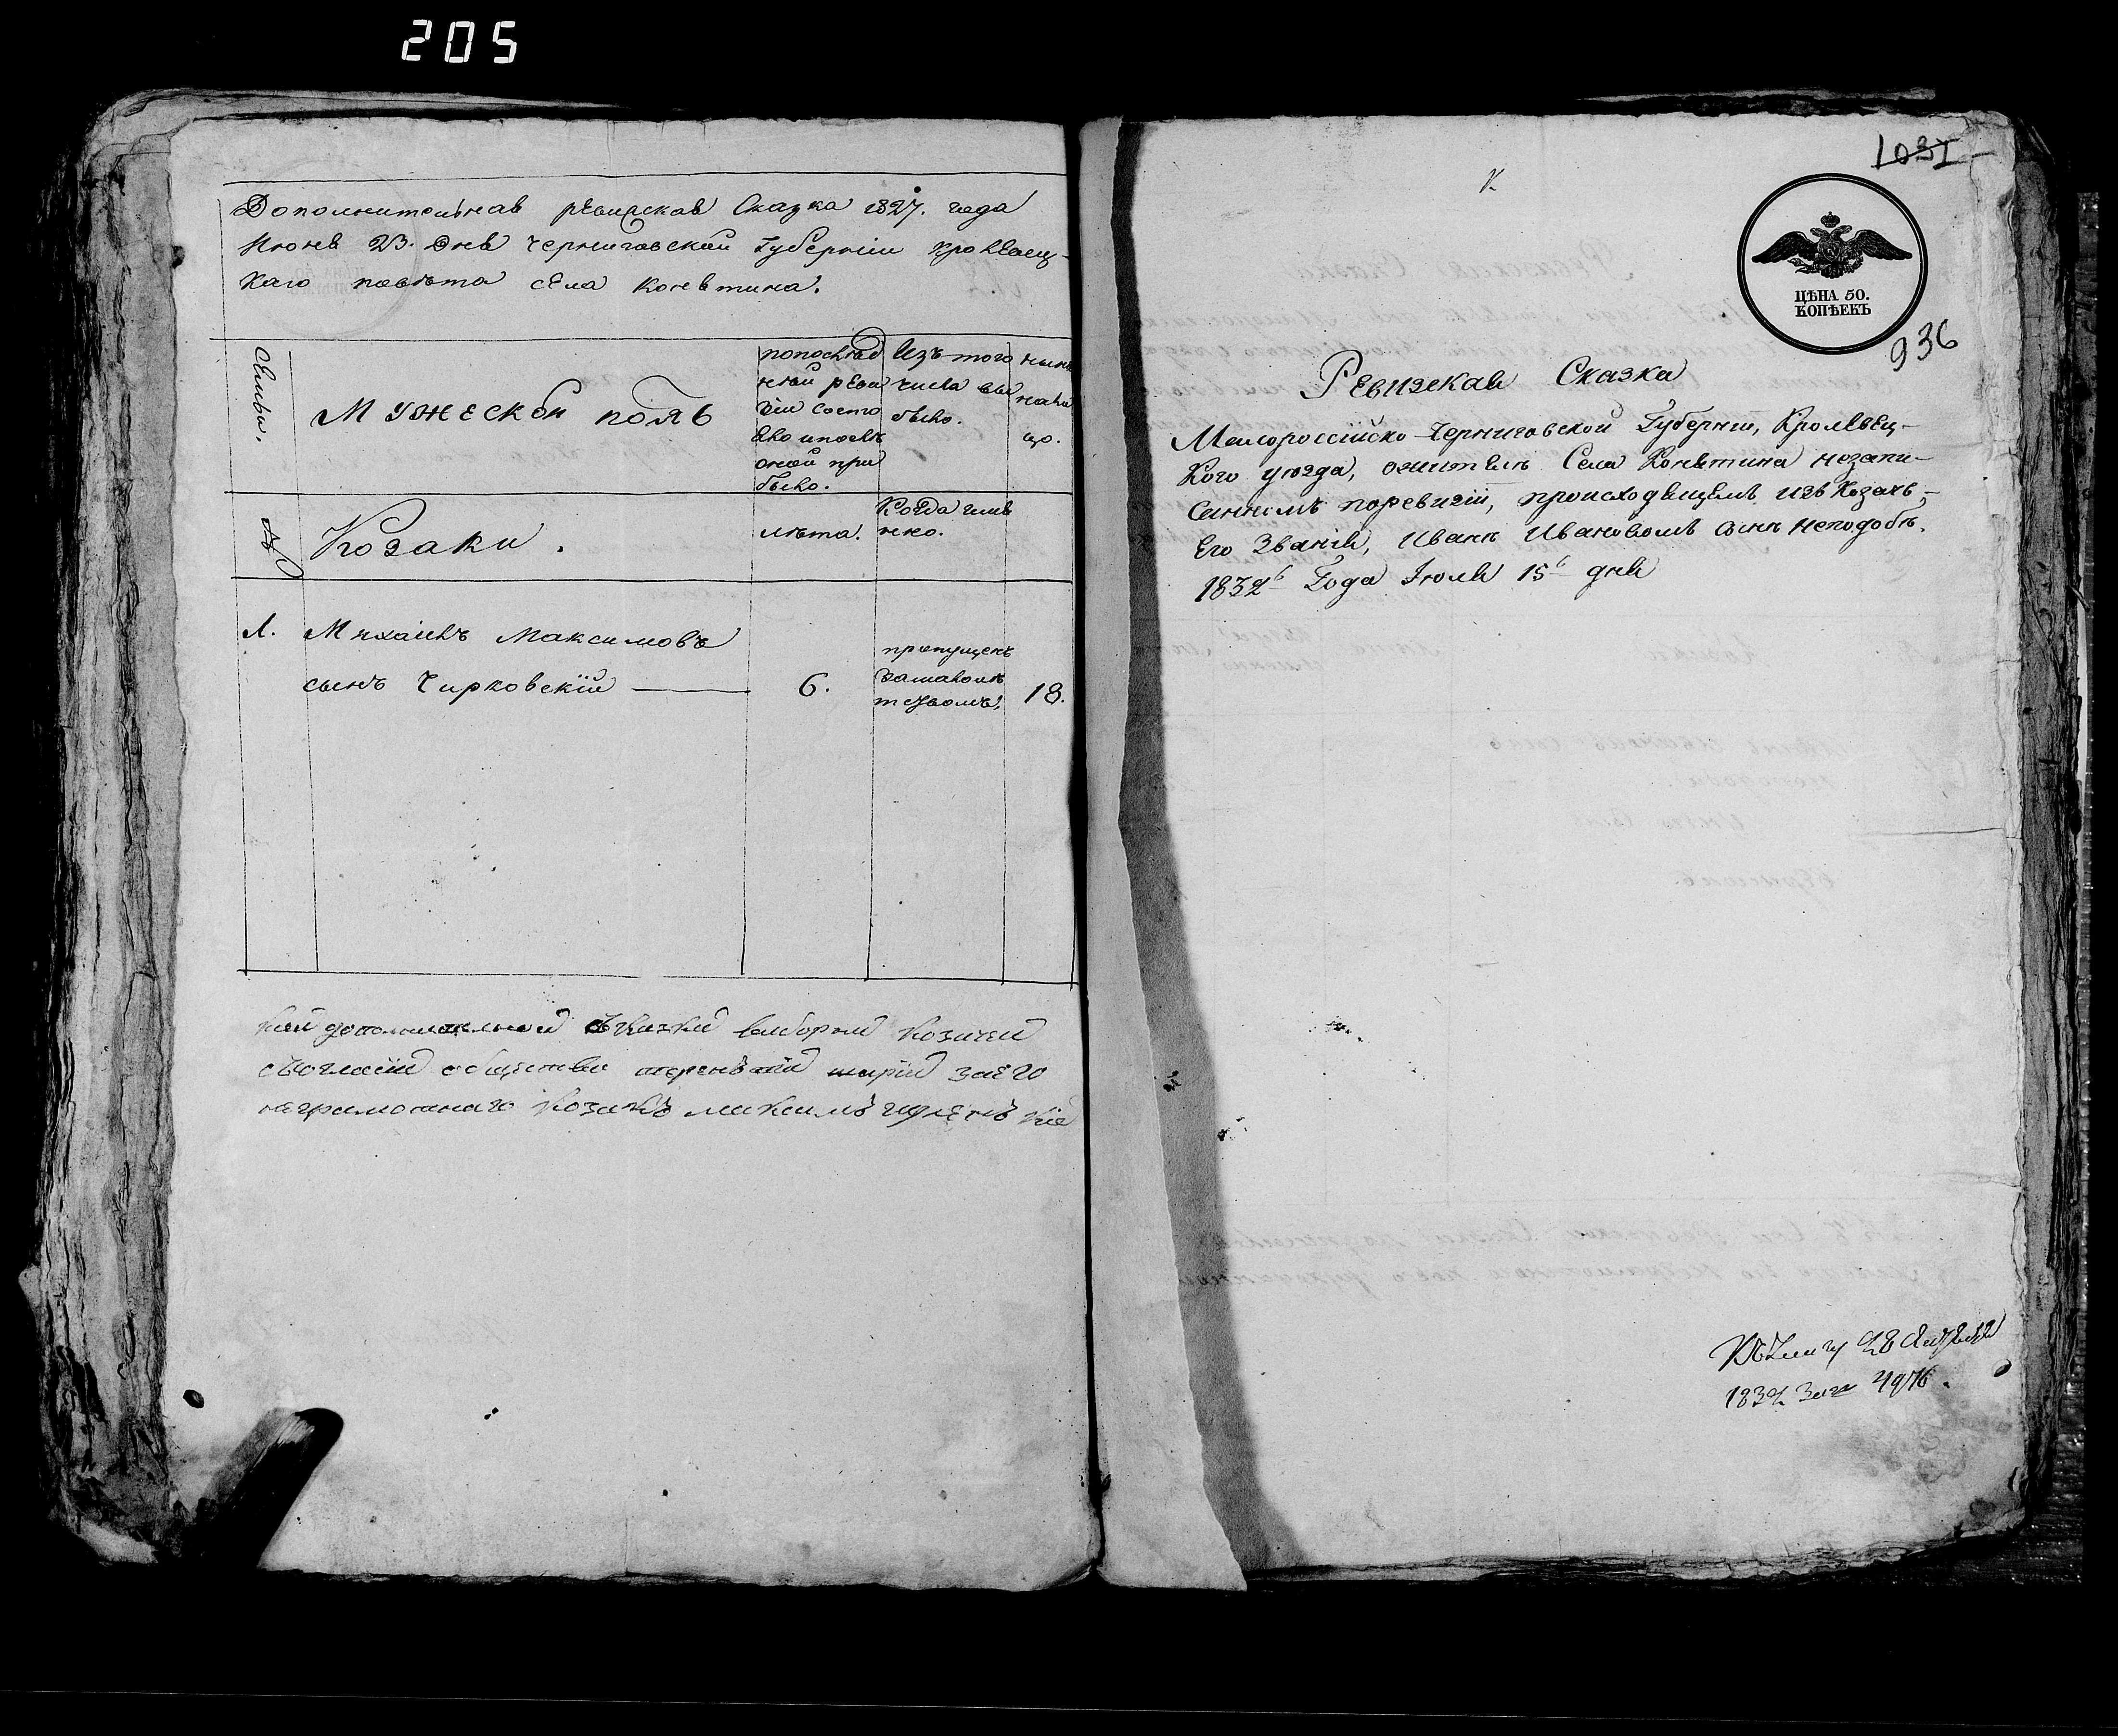 205
Дополнительная ревизская Сказка 1827. года
Июня 23. дня Черниговской Губерніи Кролевец-
каго повѣта села Конятина.
Семьи.
Мужескои полъ
попослѣд
ней реви
зіи состо
яло и послѣ
оной при
было.
Изъ того
числа вы
было.
нынѣ
налы
цо.
№
Козаки.
лѣта.
Когда имя
нно.
1.
Михаилъ Максимовъ
сынъ Чирковскій
6.
пропущенъ
18.
дополнительной выборный
общества за его
неграмотнаго козакъ максимъ
1031
К
ЦѢНА 50.
КОПѢЕКЪ
936
Ревизская Сказка
Малороссійско-Черниговской Губерніи, Кролевец-
кого уезда, о жителѣ Села Конятина незапи-
санномъ поревизіи, происходящемъ изъ козачь-
его званія, Иванѣ Ивановомъ сынѣ неподобѣ.
1832 Года Іюля 15 дня
1832 4976.